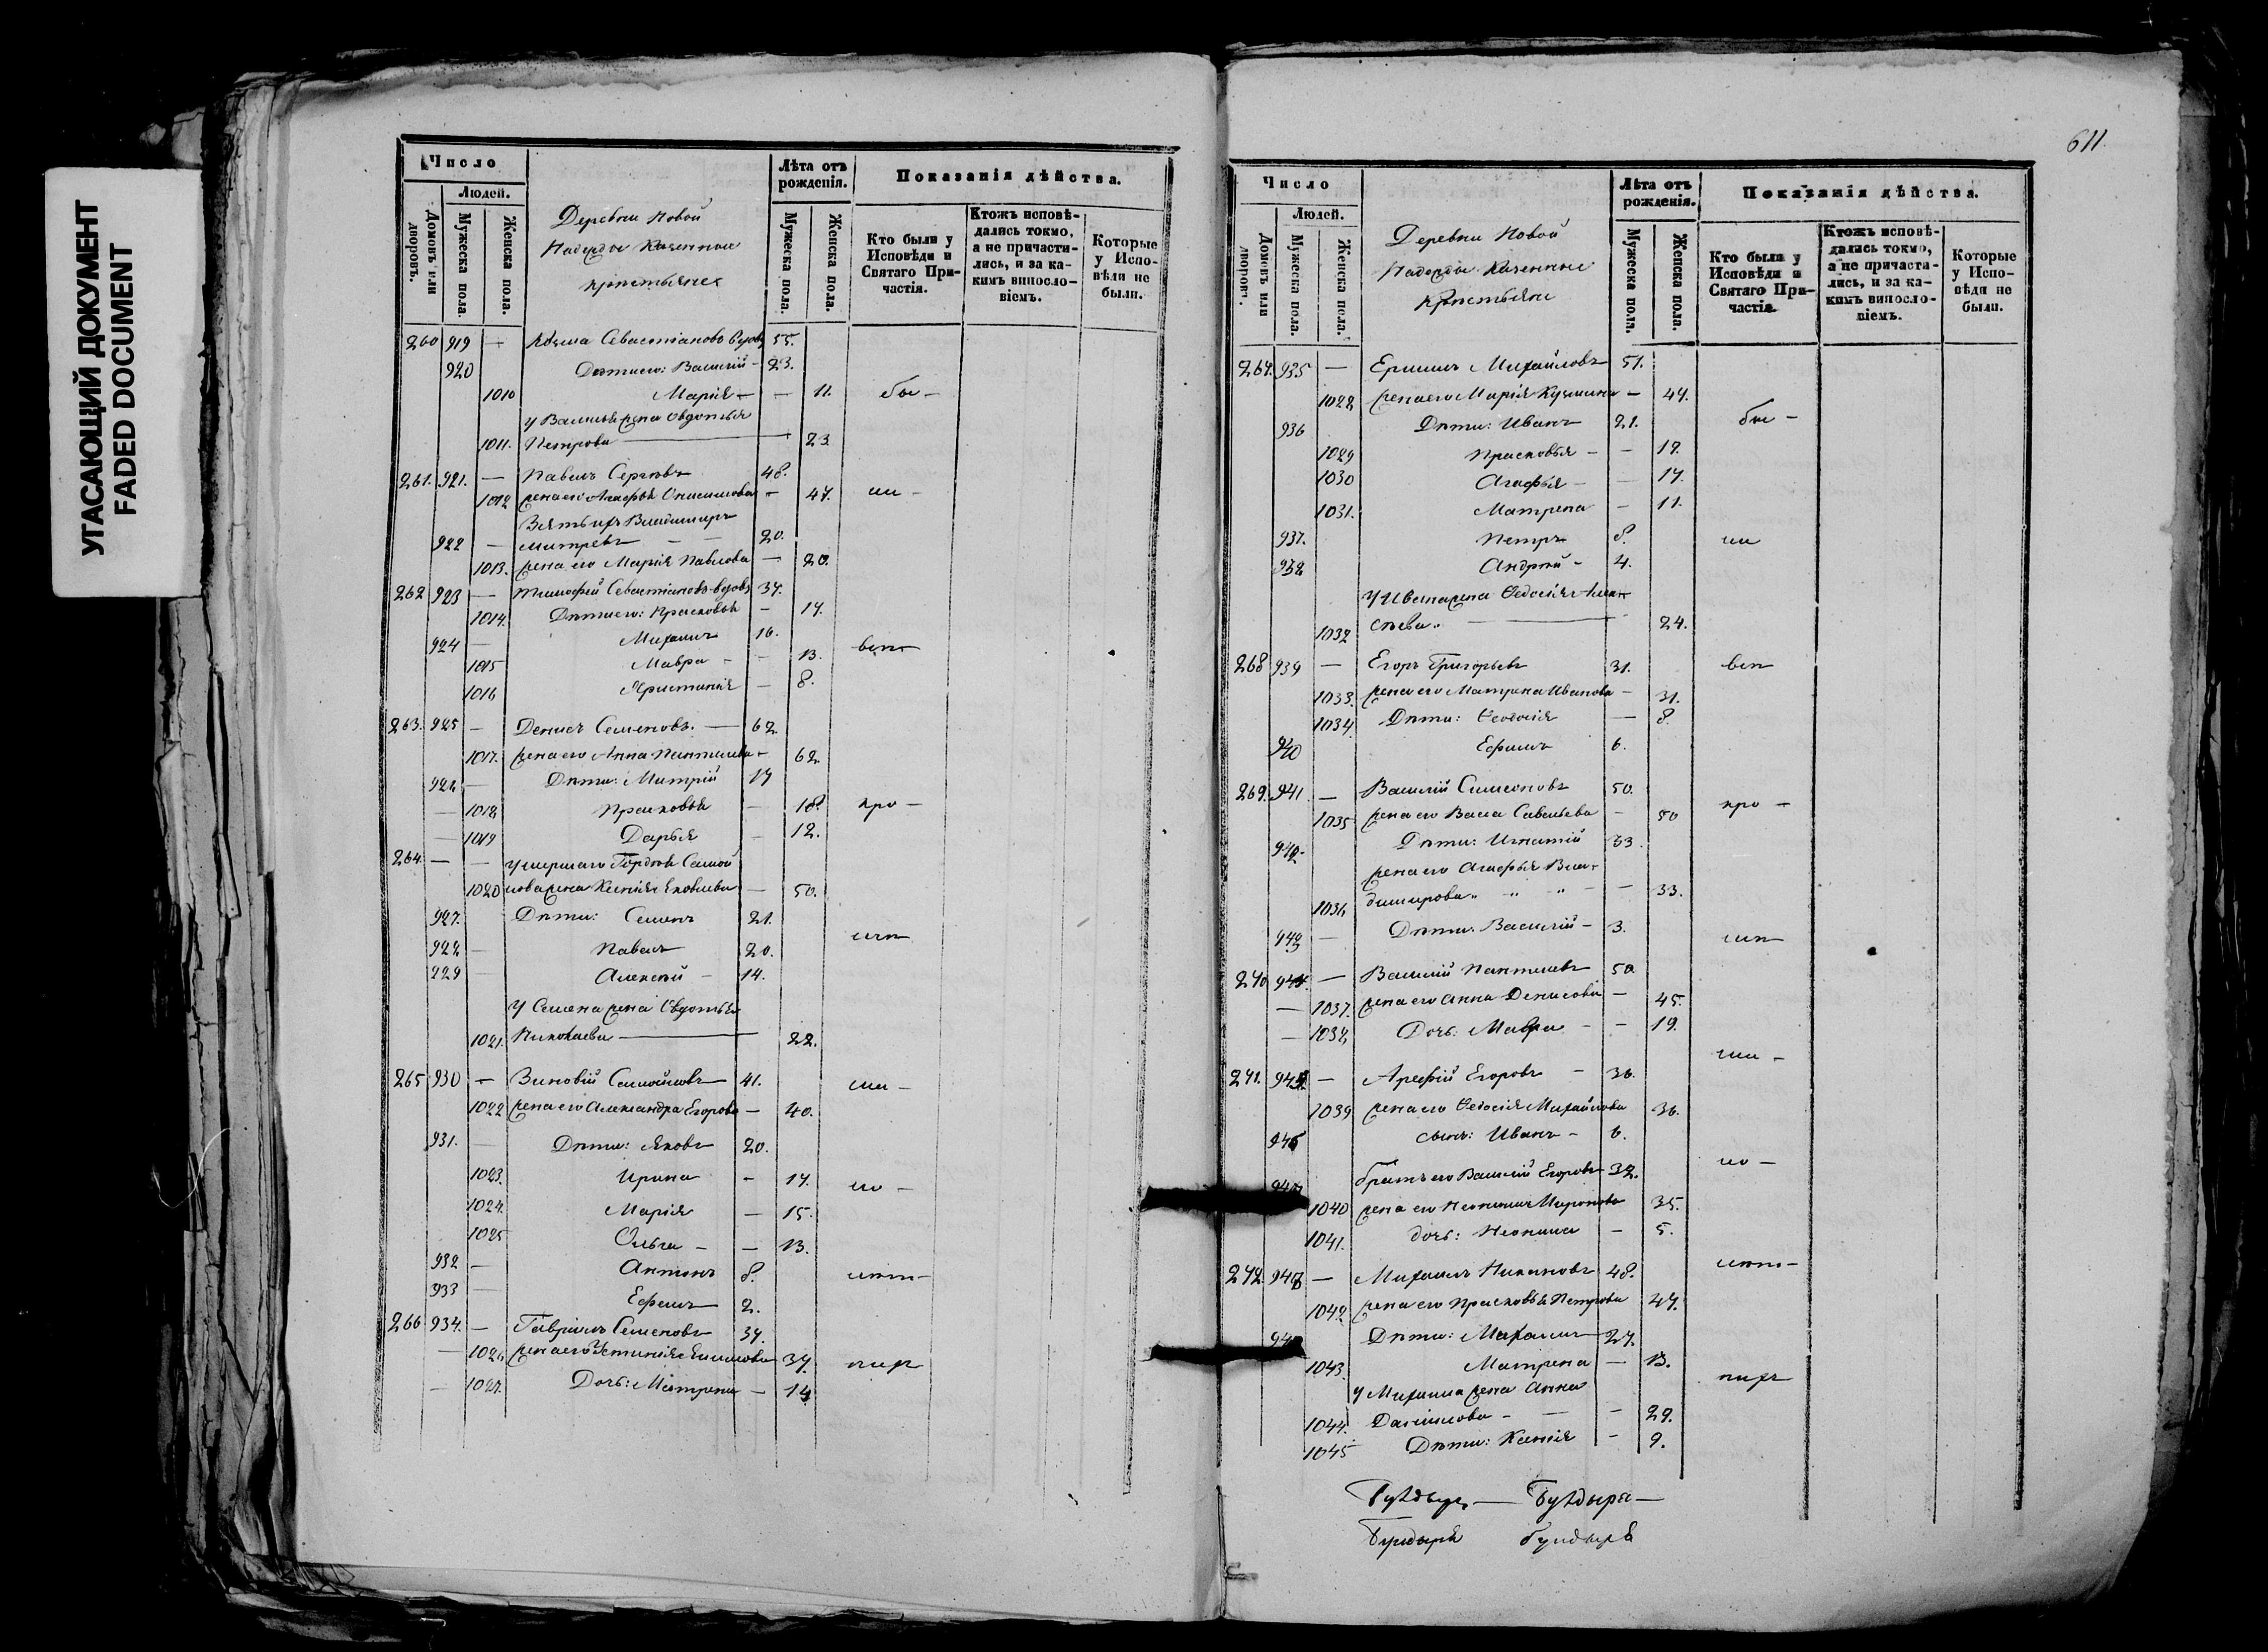 УГАСАЮЩИЙ ДОКУМЕНТ
FADED DOCUMENT
Число
Людей.
Домовъ или дворовъ.
Мужеска пола.
Женска пола.
Деревни Новой
Казенные
крестьяне
Лѣта отъ рожденія.
Мужеска пола.
Женска пола.
Показанія дѣйства.
Кто были у Исповѣди и Святаго При-частія.
Ктожъ исповѣ-дались токмо, а не причасти-лись, и за ка-кимъ винosло-віемъ.
Которые у Испо-вѣди не были.
260 919 — Козма Севастіановъ вдовъ 55.
920 Дѣти его: Василий — 23.
1010 Марія — — 11. бы —
У Василья жена Овдотья
1011. Петрова — 23
261. 921. — Павелъ Сергѣевъ 48.
1012 жена его Агафья Онисимова — 47. ли —
Зять ихъ Владимиръ
922 — Митревъ — — 20.
1013. жена его Марія Павлова — 20.
262 923 — Тимофей Севастіановъ вдовъ 37.
1014. Дѣти его: Прасковья — 17.
924 — Михаилъ 16.
1015 Мавра — — 13. всѣ
1016 Христинія — 8.
263. 925 — Денисъ Семеновъ. — 62
1017. жена его Анна Пантилева — 62
926 — Дѣти: Митрій 19
— 1018 Прасковья — 18. про —
— 1019 Дарья — 12.
264. — — умершаго Гордѣя Самой
1020 лова жена Ксенія Яковлева — 50.
927. Дѣти: Семенъ 21.
928 — Павелъ 20.
929 — Алексѣй — 14.
У Семена жена Овдотья
1021. Николаева — 22.
265 930 — Зиновій Самойловъ 41. ли —
1022 жена его Александра Егорова — 40.
931. — Дѣти: Яковъ 20.
1023. Ирина — 17. по —
1024. Марія — 15.
1025 Ольга — — 13.
932 — Антонъ 8.
933 — Ефимъ 2.
266 934. — Гавріилъ Семеновъ 37.
— 1026 жена его Устинія 37.
— 1027. Дочь: Матрена — 14
611.
Число
Людей.
Домовъ или дворовъ.
Мужеска пола.
Женска пола.
Деревни Новой
Казенные
крестьяне
Лѣта отъ рожденія.
Мужеска пола.
Женска пола.
Показанія дѣйства.
Кто были у Исповѣди и Святаго При-частія.
Ктожъ исповѣ-дались токмо, а не причасти-лись, и за ка-кимъ винosло-віемъ.
Которые у Испо-вѣди не были.
267. 935 — Еримъ Михайловъ 51.
1028 жена его Марія Кузмина — 47.
936 Дѣти: Иванъ 21. бы —
1029 Прасковья — — 17.
1030 Агафья — — 17.
1031. Матрена — 11.
937. Петръ 8. ли
938 Андрей — 4.
У Ивана жена Ѳедосія Алек-
1032 сѣева. — 24.
268 939 — Егоръ Григорьевъ 31. всѣ
1033. жена его Матрена Иванова — 31.
1034. Дѣти: Ѳедосія — 8.
940 Ефимъ 6.
269. 941. — Василій Симеоновъ 50. про —
1035 жена его Васа Савельева — 50
942. Дѣти: Игнатій 33.
жена его Агафья Вла-
1036 димирова — 33.
943 — Дѣти: Василій — 3.
270 944. — Василій Пантилевъ 50.
— 1037. жена его Анна Денисова — 45.
— 1038 Дочь: Мавра — — 19.
271. 945. — Арефій Егоровъ — 36.
1039 жена его Ѳедосія Михайлова 36.
946 сынъ: Иванъ — 6.
947 братъ его Василій Егоровъ 32. по —
1040 жена его Неонила Миронова 35.
1041. дочь: Неонила — 5.
272. 948 — Михаилъ Никановъ 48.
1042 жена его Прасковья Петрова 47.
Дѣти: Михаилъ 27.
1043. Матрена — 13.
У Михаила жена Анна
1044. Даниилова — — — 29.
1045 Дѣти: Ксенія — 9.